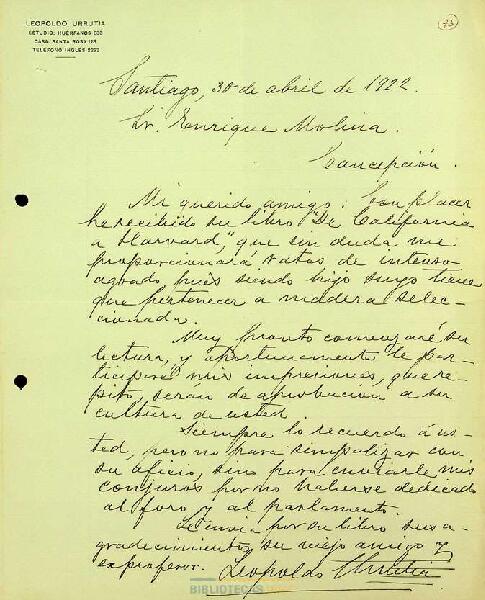 LEOPOLDO URRUTIA
ESTUDIO: HUERFANOS
CASA: SANTA ROSA
TELEFONO INGLES
73
Santiago, 30 de abril de 1922.
Sr. Enrique Molina.
Concepción.
Mi querido amigo: Con placer
he recibido su libro "De California
a Harvard", que sin duda me
proporcionará ratos de intenso
agrado pues siendo hijo suyo tiene
que pertenecer a madera selec-
cionada.
Muy pronto comenzaré su
lectura, y oportunamente le par-
ticiparé mis impresiones, que re-
pito, serán de aprobación a su
cultura de usted.
Siempre lo recuerdo á us-
ted, pero no para simpatizar con
su oficio, sino para enviarle mis
conjuros por no haberse dedicado
al foro y al parlamento.
Le envía por su libro sus a-
gradecimientos su viejo amigo y
exprofesor. Leopoldo Urrutia
BIBLIOTECA